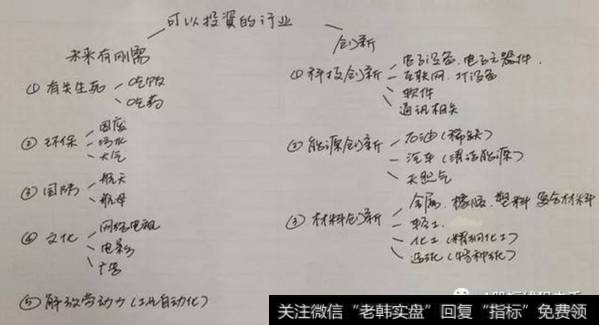 可以投资的行业
未来有刚需
创新
① 有关生死
吃饭
吃药
② 环保
固废
污水
大气
③ 国防
航天
航母
④ 文化
网络电视
电影
广告
⑤ 解放劳动力(工业自动化)
① 科技创新
电子设备、电子元器件.
互联网、IT设备
软件
通讯相关
② 能源创新
石油(稀缺)
汽车(清洁能源)
天然气
③ 材料创新
金属、橡胶、塑料 复合材料
轻工
化工(精细化工)
造纸(特种纸)
关注微信“老韩实盘”回复“指标”免费领